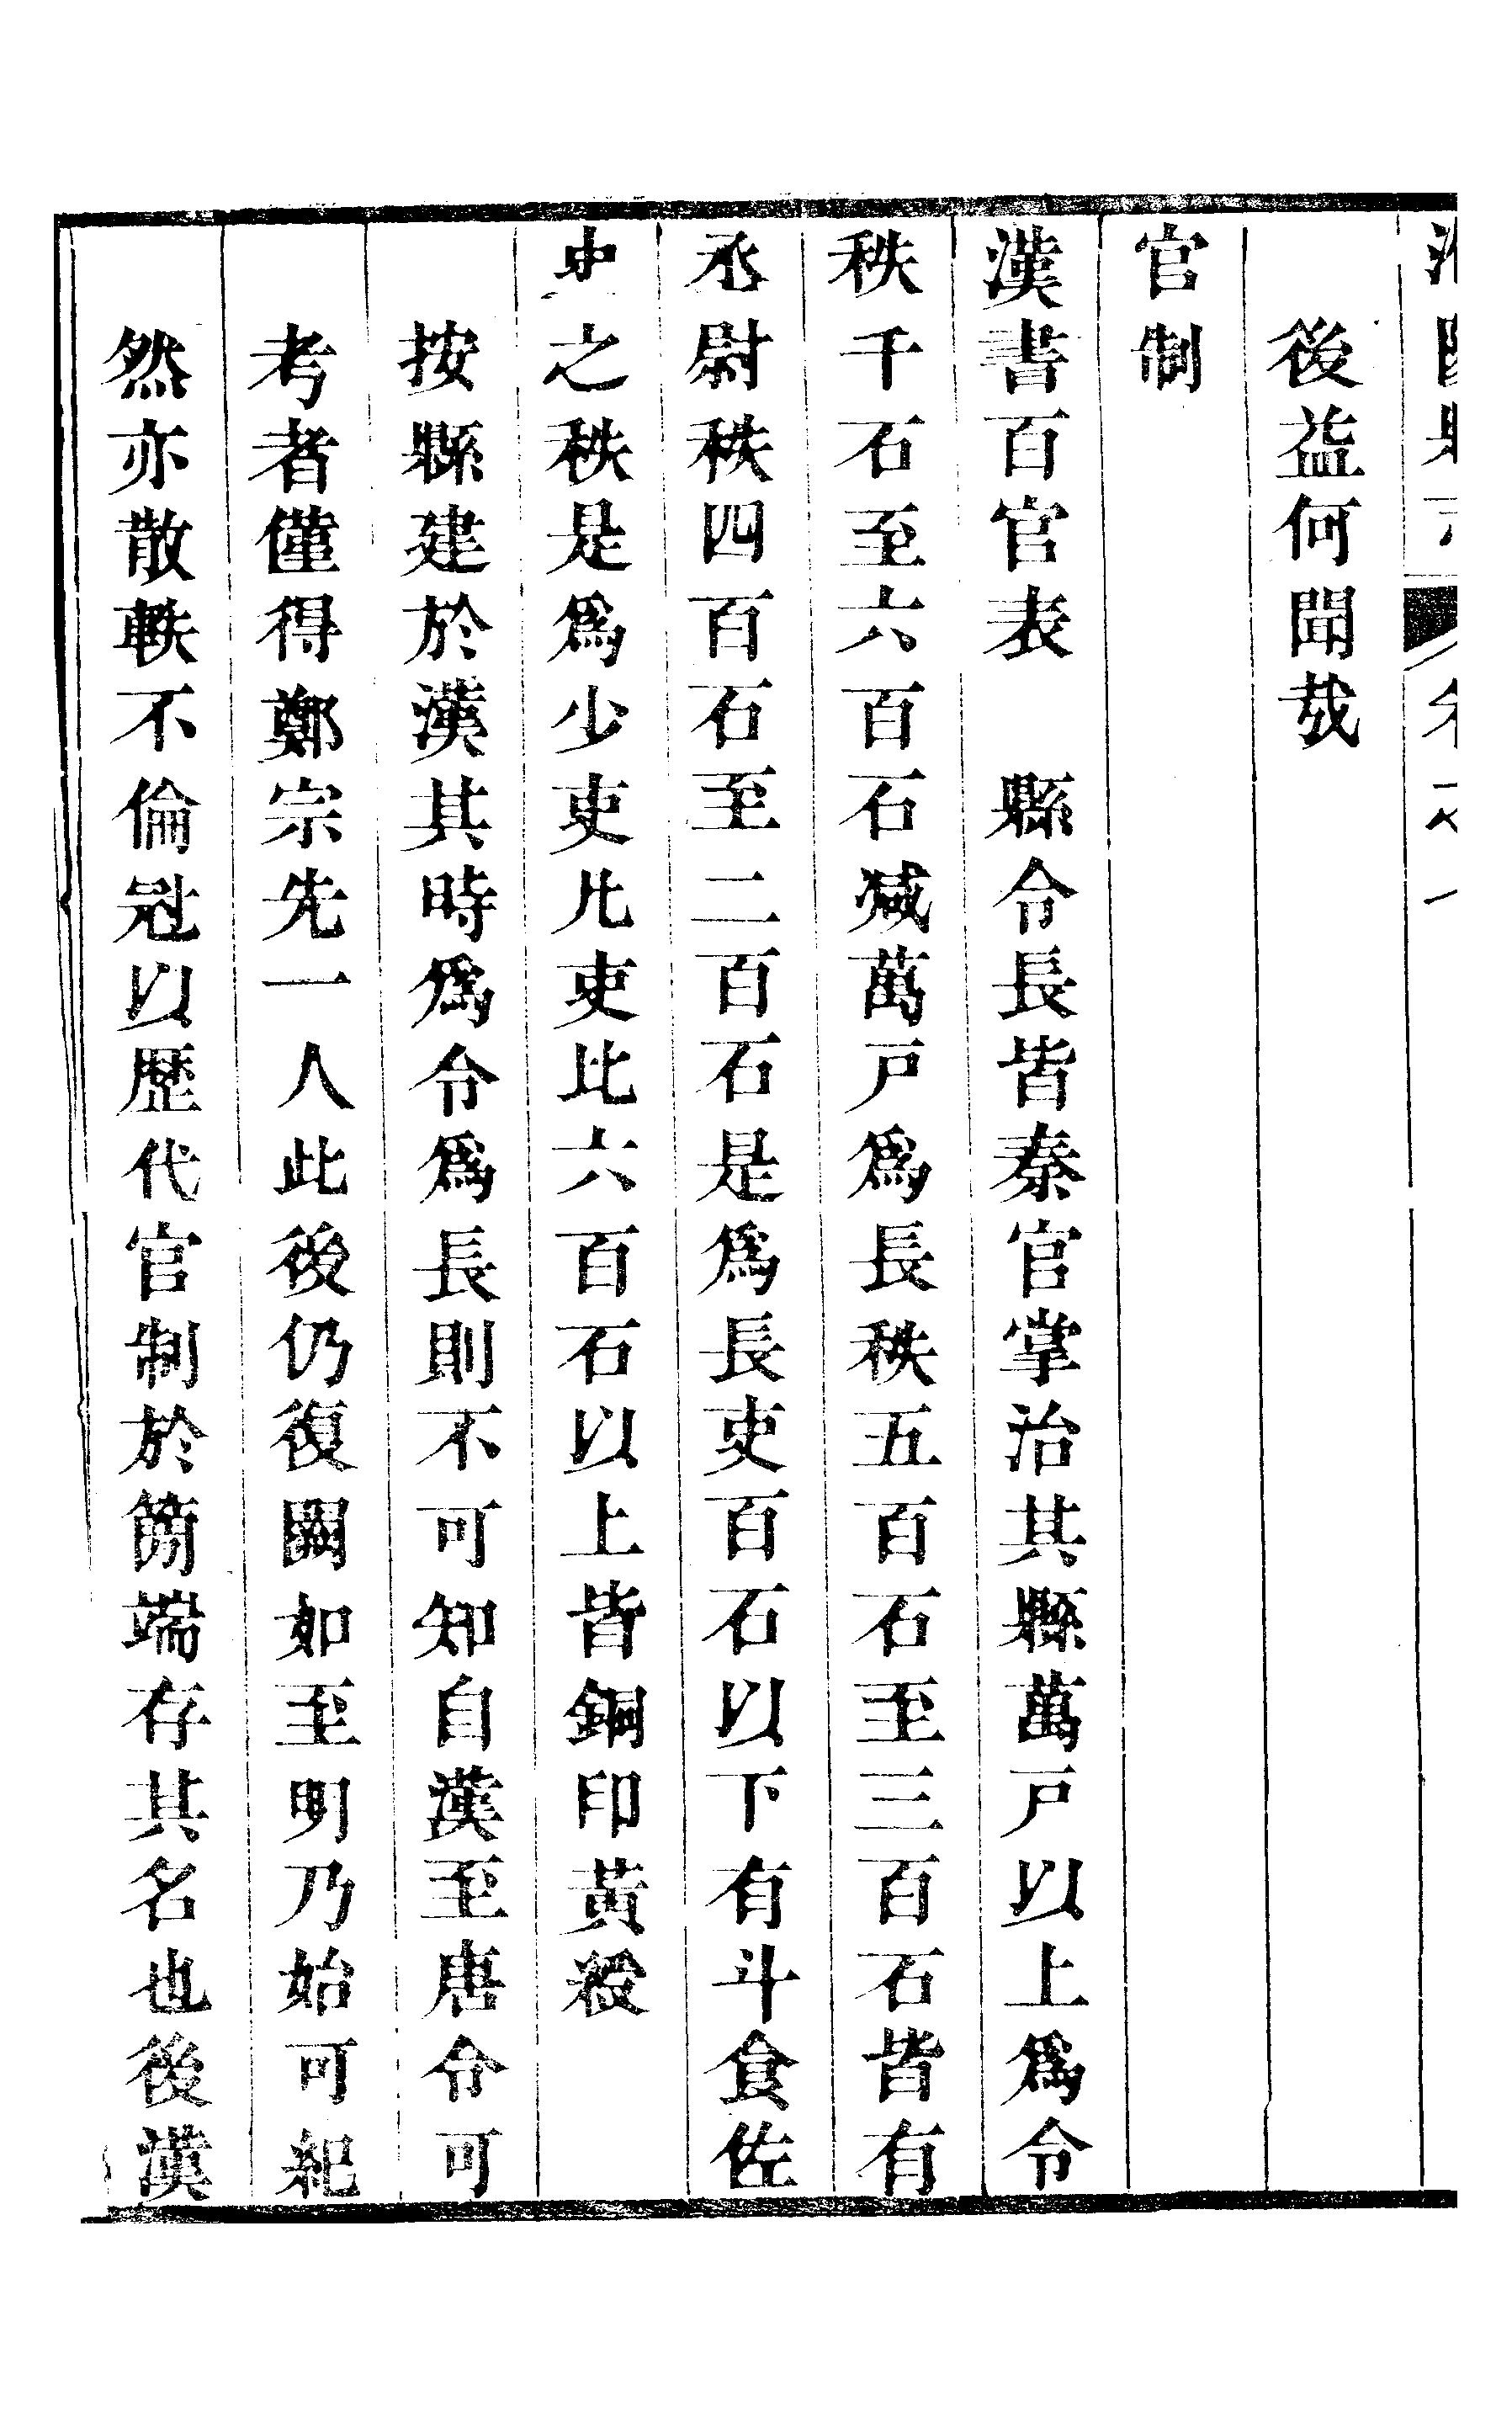 後益何聞哉
官制
漢書百官表　縣令長皆秦官掌治其縣萬戸以上爲令
秩千石至六百石減萬戸爲長秩五百石至三百石皆有
丞尉秩四百石至二百石是爲長吏百石以下有斗食佐
史之秩是爲少吏凡吏比六百石以上皆銅印黃綬
按縣建於漢其時爲令爲長則不可知自漢至唐令可
考者僅得鄭宗先一人此後仍復闕如至明乃始可紀
然亦散軼不倫冠以歷代官制於簡端存其名也後漢